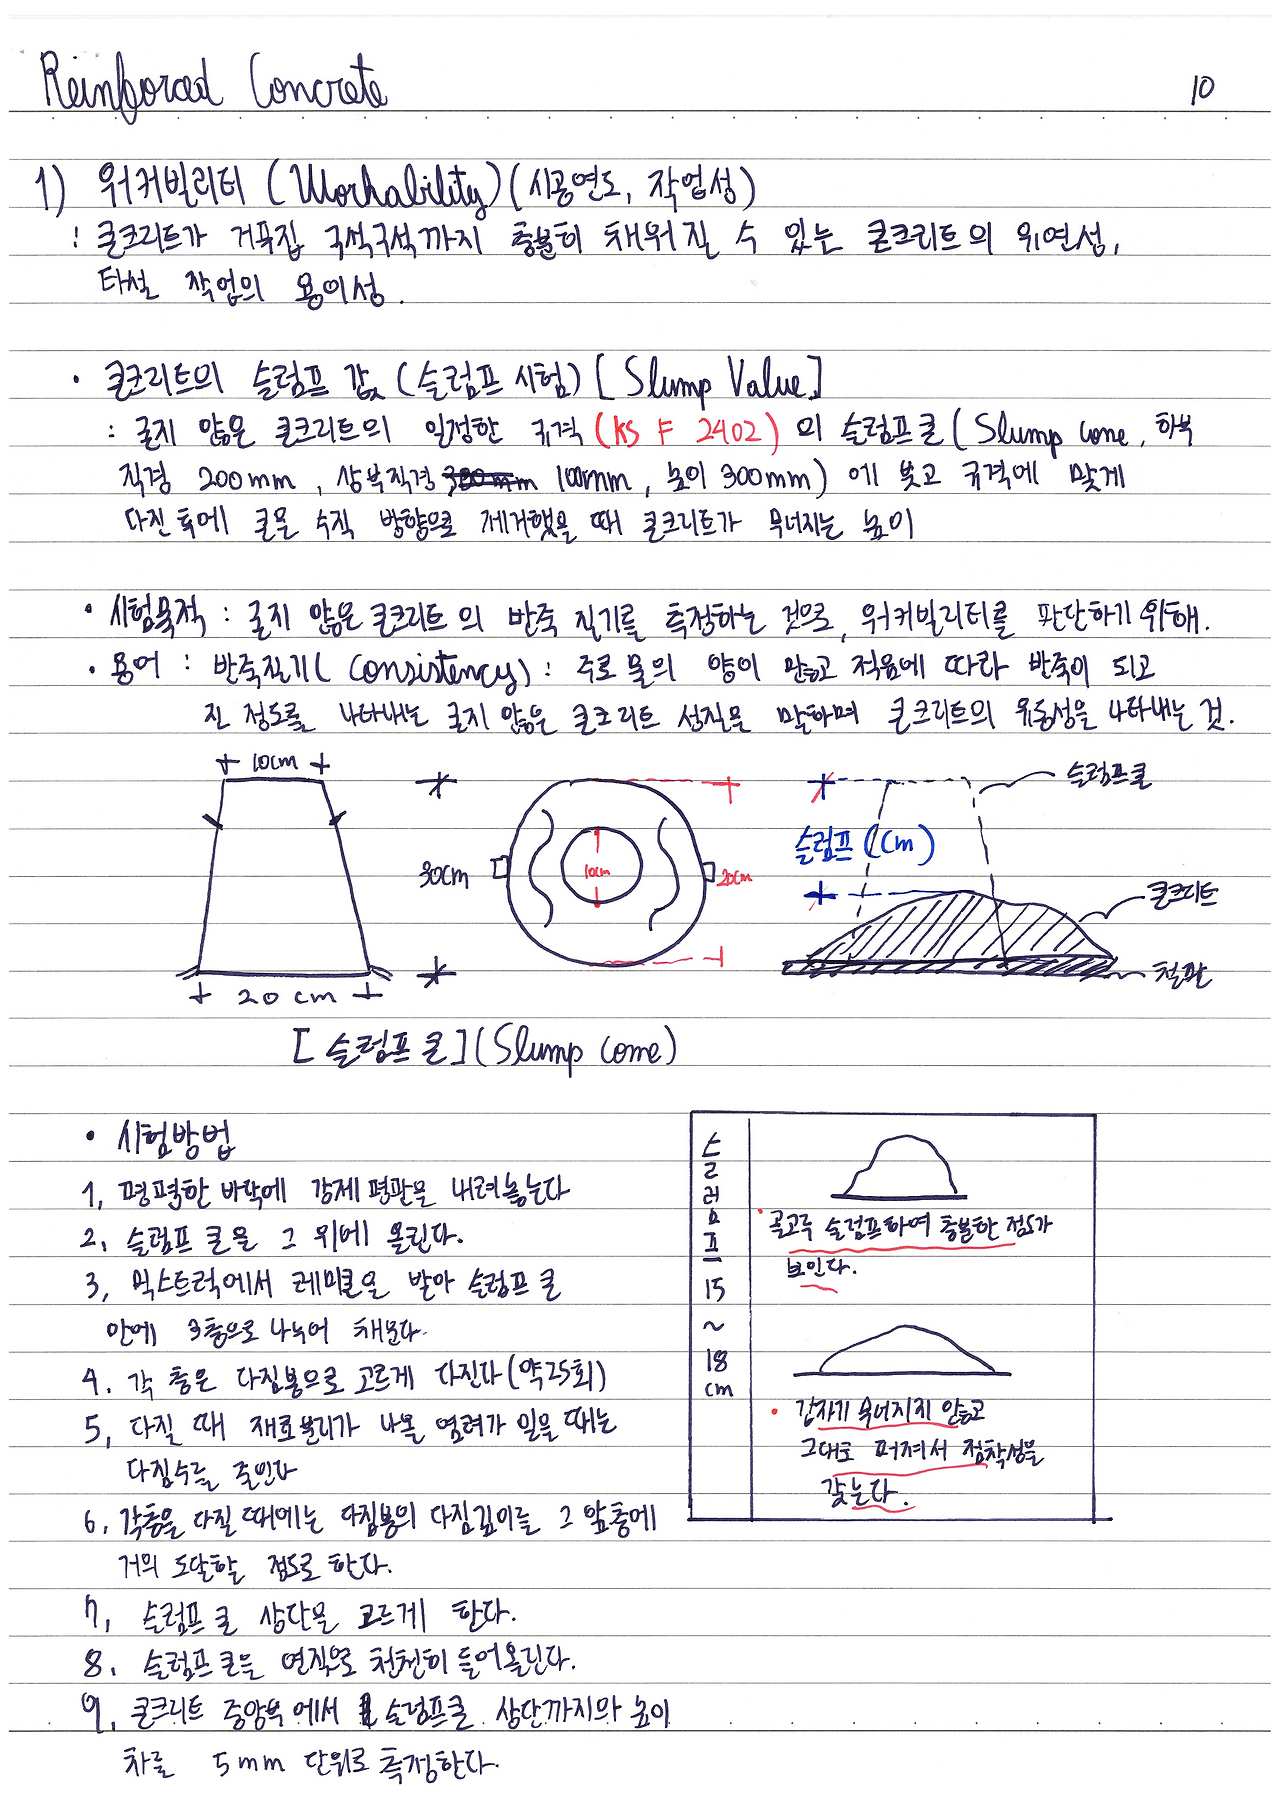 Reinforced Concrete
10
1) 워커빌리터 (Workability) (시공연도, 작업성)
: 콘크리트가 거푸집 구석구석까지 충분히 채워질 수 있는 콘크리트의 유연성,
타설 작업의 용이성.
· 콘크리트의 슬럼프 값 (슬럼프 시험) [Slump Value]
: 굳지 않은 콘크리트의 일정한 규격 (KS F 2402) 의 슬럼프콘 (Slump cone, 하부
직경 200mm, 상부직경 100mm, 높이 300mm) 에 붓고 규격에 맞게
다진 후에 콘을 수직 방향으로 제거했을 때 콘크리트가 무너지는 높이
· 시험목적 : 굳지 않은 콘크리트의 반죽 질기를 측정하는 것으로, 워커빌리티를 판단하기 위해.
· 용어 : 반죽질기 (Consistency) : 주로 물의 양이 많고 적음에 따라 반죽이 되고
진 정도를 나타내는 굳지 않은 콘크리트 성질을 말하며 콘크리트의 유동성을 나타내는 것.
10cm
30cm
20cm
10cm
20cm
슬럼프콘
슬럼프 (cm)
콘크리트
철판
[슬럼프 콘] (Slump cone)
· 시험방법
1, 평평한 바닥에 강제 평판을 내려놓는다
2, 슬럼프 콘을 그 위에 올린다.
3, 믹스트럭에서 레미콘을 받아 슬럼프 콘
안에 3층으로 나누어 채운다.
4. 각 층은 다짐봉으로 고르게 다진다 (약25회)
5, 다질 때 재료분리가 나올 염려가 있을 때는
다짐수를 줄인다
6, 각층을 다질 때에는 다짐봉의 다짐깊이를 그 앞층에
거의 도달할 정도로 한다.
7, 슬럼프 콘 상단을 고르게 한다.
8. 슬럼프콘을 연직으로 천천히 들어올린다.
9, 콘크리트 중앙부에서 슬럼프콘 상단까지의 높이
차를 5mm 단위로 측정한다.
슬럼프 15 ~ 18 cm
· 골고루 슬럼프하여 충분한 점도가
보인다.
· 갑자기 무너지지 않고
그대로 퍼져서 점착성을
갖는다.